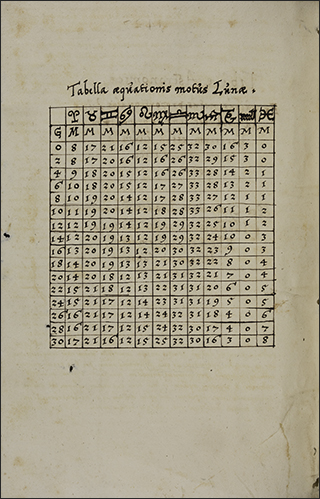 Tabella æquationis motûs Lunæ.
♈ ♉ ♊ ♋ ♌ ♍ ♎ ♏ ♐ ♑ ♒ ♓
G M M M M M M M M M M M M
0 8 17 21 16 12 15 25 32 30 16 3 0
2 8 17 20 16 12 16 26 32 29 15 3 0
4 9 18 20 15 12 16 26 33 28 14 2 1
6 10 18 20 15 12 17 27 33 28 13 2 1
8 10 19 20 14 12 17 28 33 27 12 1 1
10 11 19 20 14 12 18 28 33 26 11 1 2
12 12 19 19 14 12 19 29 32 25 10 1 2
14 12 20 19 13 12 19 29 32 24 10 0 3
16 13 20 19 13 12 20 30 32 23 9 0 3
18 14 20 19 13 13 21 30 32 22 8 0 4
20 14 20 18 12 13 21 31 32 21 7 0 4
22 15 21 18 12 13 22 31 31 20 6 0 5
24 15 21 17 12 14 23 31 31 19 5 0 5
26 16 21 17 12 14 24 32 31 18 4 0 6
28 16 21 17 12 15 24 32 30 17 4 0 7
30 17 21 16 12 15 25 32 30 16 3 0 8